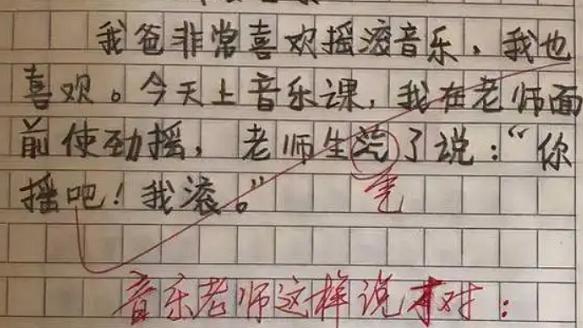 我爸非常喜欢摇滚音乐，我也
喜欢。今天上音乐课，我在老师面
前使劲摇，老师生芞了说：“你
摇吧！我滚。”
气
音乐老师这样说才对：